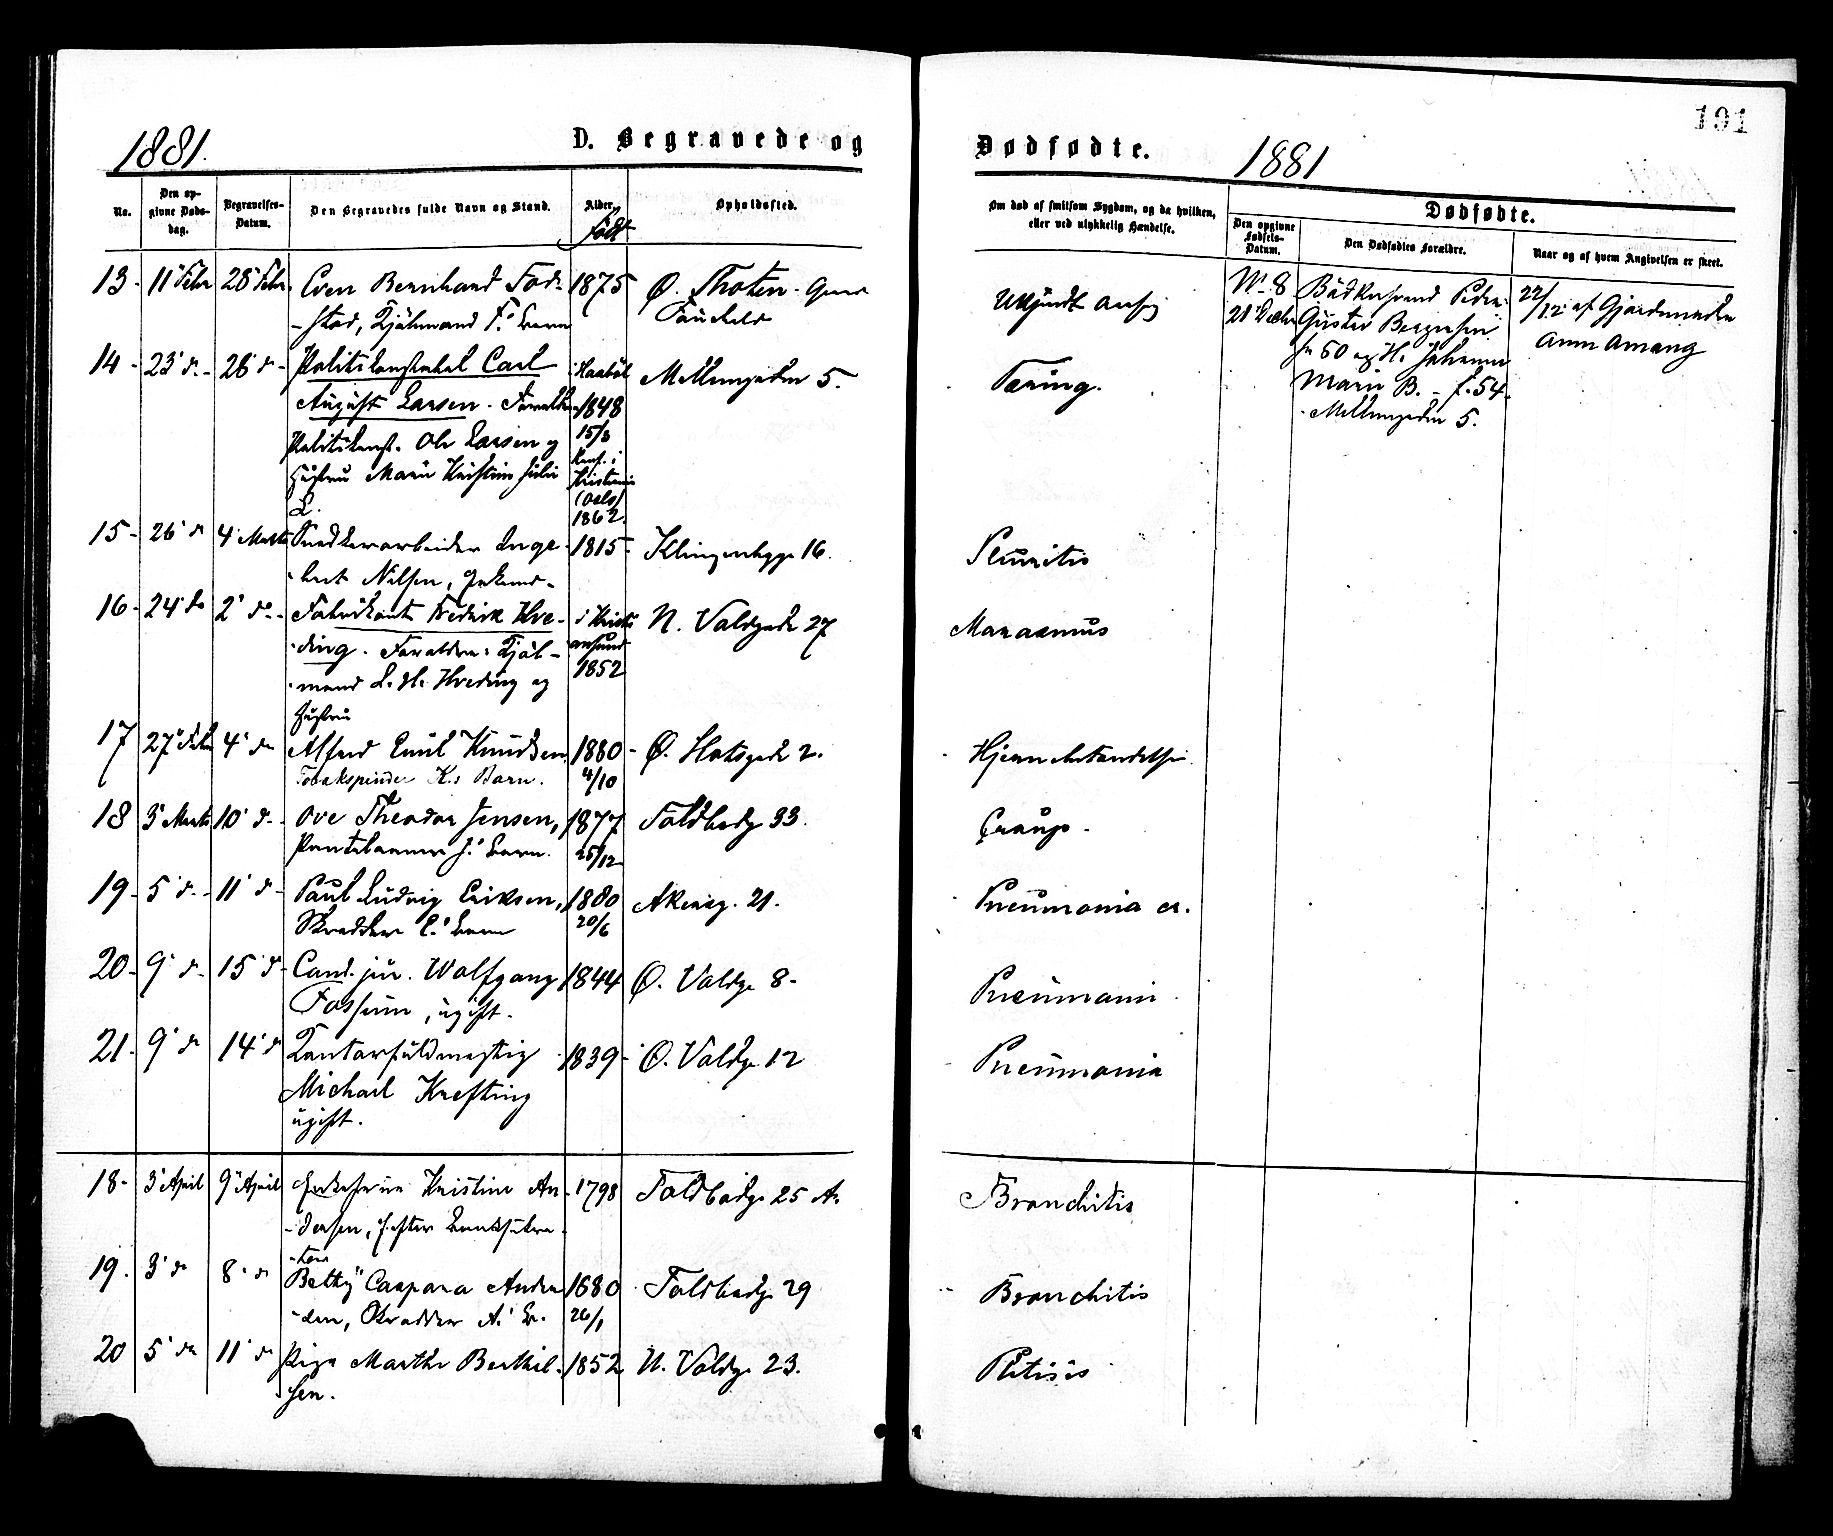 1881.
D. Begravede og
No.
Den op-
givne Døds-
dag.
Begravelses-
Datum.
Den Begravedes fulde Navn og Stand.
Alder.
Født
Opholdssted.
13 - 11' Febr 28' Febr. Even Bernhard 1875 Ø. Thoten
14 - 23' d. - 26' d - Politikonstabel Carl
August Larsen - 1848 Mellemgaden 5.
15/3
Politikonst. Ole Larsen og
Hustru Marie Kristine Julie Konf. i
L. (Oslo)
1862.
15 - 26' d 4' Marts Snedkerarbeider Inge- 1815 - Klingenbgge 16.
bret Nilsen, Enkem-
16 - 24' d 2' d. - Fabrikant Fredrik Hve- i Kristi N. Valdgade 27
ding. Forældre: Kjøb- ansund
mand L. H. Hveding og 1852
Hustru
17 27' Febr 4' d Alfred Emil Knudsen 1880 - Ø. Slotsgade 2.
Tobakspinder K.s Barn. 4/10
18 3' Marts 10' d. - Ove Theodor Jensen, 1877 Toldbodg 33.
J.' Barn. 25/12
19 - 5' d. - 11' d - Paul Ludvig Eriksen, 1880 Akersg. 21.
Skrædder E.' Barn 20/6
20 - 9' d - 15' d - Cand. jur. Wolfgang 1844 Ø. Voldg. 8 -
Fossum, ugift.
21. 9' d 14' d Kontorfuldmægtig 1839 - Ø. Voldg. 12
Michael Krefting
ugift.
18 - 3' April 9' April Enkefrue Kristine An- 1798 Toldbodg. 25 A.
dersen, efter
19. 3' d 8' d Betty Caspara Ander 1880 Toldbodg. 29
sen, Skrædder A.' B. 26/1
20 5' d 11' d Pige Marthe Berthel- 1852 N. Voldg. 23.
sen.
191
Dødfødte.
1881
Om død af smitsom Sygdom, og da hvilken,
eller ved ulykkelig Hændelse.
Dødfødte.
Den opgivne
Fødsels-
Datum.
Den Dødfødtes Forældre.
Naar og af hvem Angivelsen er skeet.
Ukjendt Aarsag
No. 8
21' Decbr
Gustav
f. 50 og H. Johanne
Marie B. - f. 54.
Mellemgaden 5.
22/12 af Gjordemoder
Anne Amang
Tæring.
Pleuritis
Marasmus
Hjernebetændelse.
Croup.
Pneumonia cr.
Pneumoni
Pneumonia
Bronchitis
Bronchitis
Phtisis